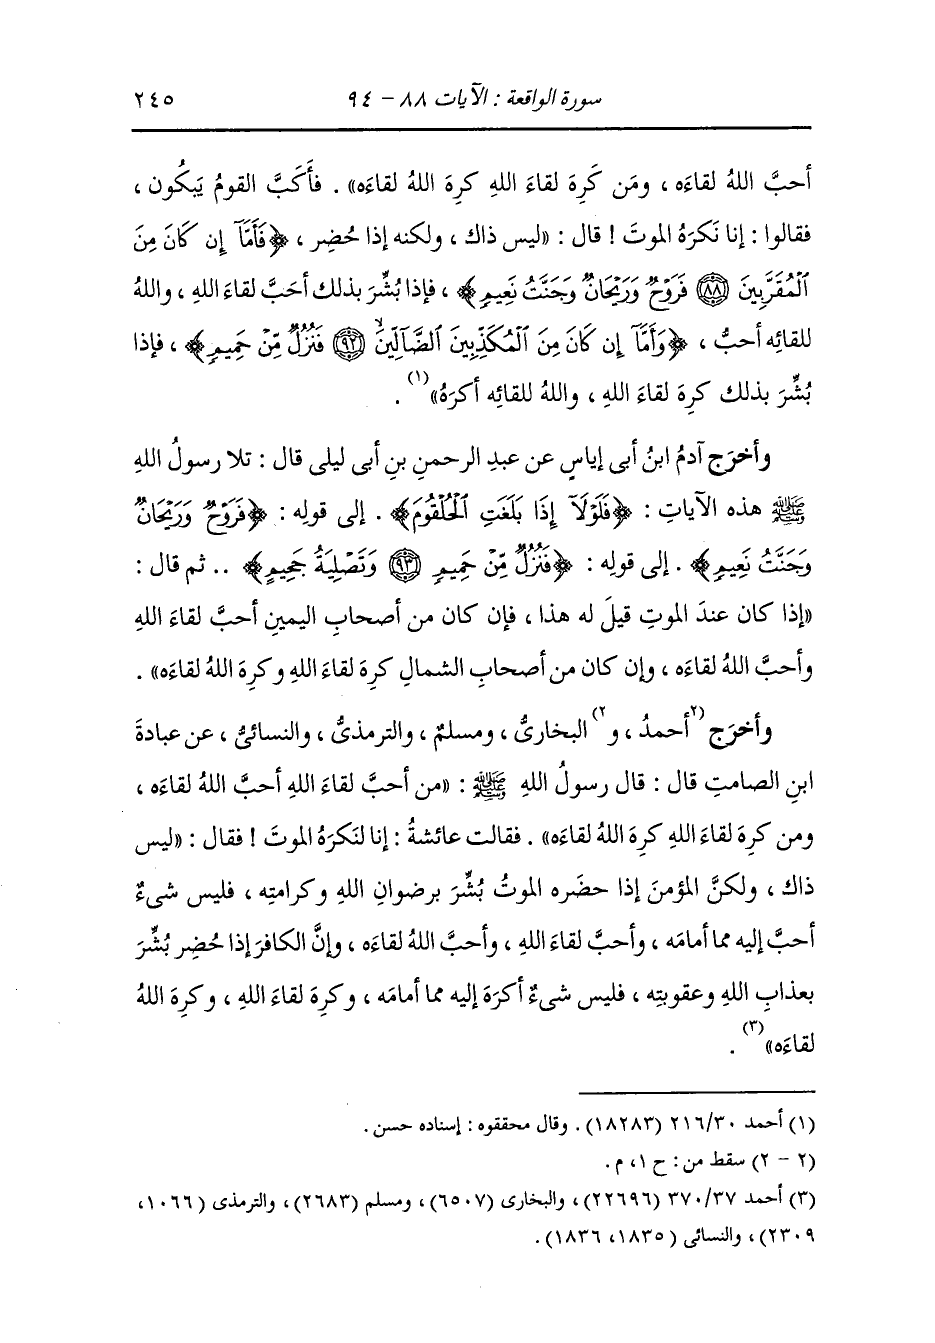 سورة الواقعة : الآيات ٨٨ - ٩٤ ٢٤٥
أحبَّ اللهُ لقاءَه ، ومَن كَرِهَ لقاءَ اللهِ كرِهَ اللهُ لقاءَه» . فأَكَبَّ القومُ يَبكُون ،
فقالوا : إنا نَكرَهُ الموتَ ! قال : «ليس ذاك ، ولكنه إذا حُضِر ، ﴿فَأَمَّآ إِن كَانَ مِنَ
ٱلْمُقَرَّبِينَ ﴿٨٨﴾ فَرَوْحٌ وَرَيْحَانٌ وَجَنَّتُ نَعِيمٍ﴾ ، فإذا بُشِّرَ بذلك أحَبَّ لقاءَ اللهِ ، واللهُ
للقائِه أحبُّ ، ﴿وَأَمَّآ إِن كَانَ مِنَ ٱلْمُكَذِّبِينَ ٱلضَّآلِّينَ ﴿٩٢﴾ فَنُزُلٌ مِّنْ حَمِيمٍ﴾ ، فإذا
بُشِّرَ بذلك كرِهَ لقاءَ اللهِ ، واللهُ للقائِه أكرَهُ»(١) .
وأخرَج آدمُ ابنُ أبى إياسٍ عن عبدِ الرحمنِ بنِ أبى ليلى قال : تلا رسولُ اللهِ
ﷺ هذه الآياتِ : ﴿فَلَوْلَآ إِذَا بَلَغَتِ ٱلْحُلْقُومَ﴾ . إلى قولِه : ﴿فَرَوْحٌ وَرَيْحَانٌ
وَجَنَّتُ نَعِيمٍ﴾ . إلى قولِه : ﴿فَنُزُلٌ مِّنْ حَمِيمٍ ﴿٩٣﴾ وَتَصْلِيَةُ جَحِيمٍ﴾ .. ثم قال :
«إذا كان عندَ الموتِ قيلَ له هذا ، فإن كان من أصحابِ اليمينِ أحبَّ لقاءَ اللهِ
وأحبَّ اللهُ لقاءَه ، وإن كان من أصحابِ الشمالِ كرِهَ لقاءَ اللهِ وكرِهَ اللهُ لقاءَه» .
وأخرَج (٢)أحمدُ ، و(٢) البخارىُّ ، ومسلمٌ ، والترمذىُّ ، والنسائىُّ ، عن عبادةَ
ابنِ الصامتِ قال : قال رسولُ اللهِ ﷺ : «من أحبَّ لقاءَ اللهِ أحبَّ اللهُ لقاءَه ،
ومن كرِهَ لقاءَ اللهِ كرِهَ اللهُ لقاءَه» . فقالت عائشةُ : إنا لنَكرَهُ الموتَ ! فقال : «ليس
ذاك ، ولكنَّ المؤمنَ إذا حضَره الموتُ بُشِّرَ برضوانِ اللهِ وكرامتِه ، فليس شىءٌ
أحبَّ إليه مما أمامَه ، وأحبَّ لقاءَ اللهِ ، وأحبَّ اللهُ لقاءَه ، وإنَّ الكافرَ إذا حُضِر بُشِّرَ
بعذابِ اللهِ وعقوبتِه ، فليس شىءٌ أكرَهَ إليه مما أمامَه ، وكرِهَ لقاءَ اللهِ ، وكرِهَ اللهُ
لقاءَه»(٣) .
(١) أحمد ٢١٦/٣٠ (١٨٢٨٣) . وقال محققوه : إسناده حسن .
(٢ - ٢) سقط من : ح ١، م .
(٣) أحمد ٣٧٠/٣٧ (٢٢٦٩٦) ، والبخارى (٦٥٠٧) ، ومسلم (٢٦٨٣) ، والترمذى (١٠٦٦ ،
٢٣٠٩) ، والنسائى (١٨٣٥، ١٨٣٦) .